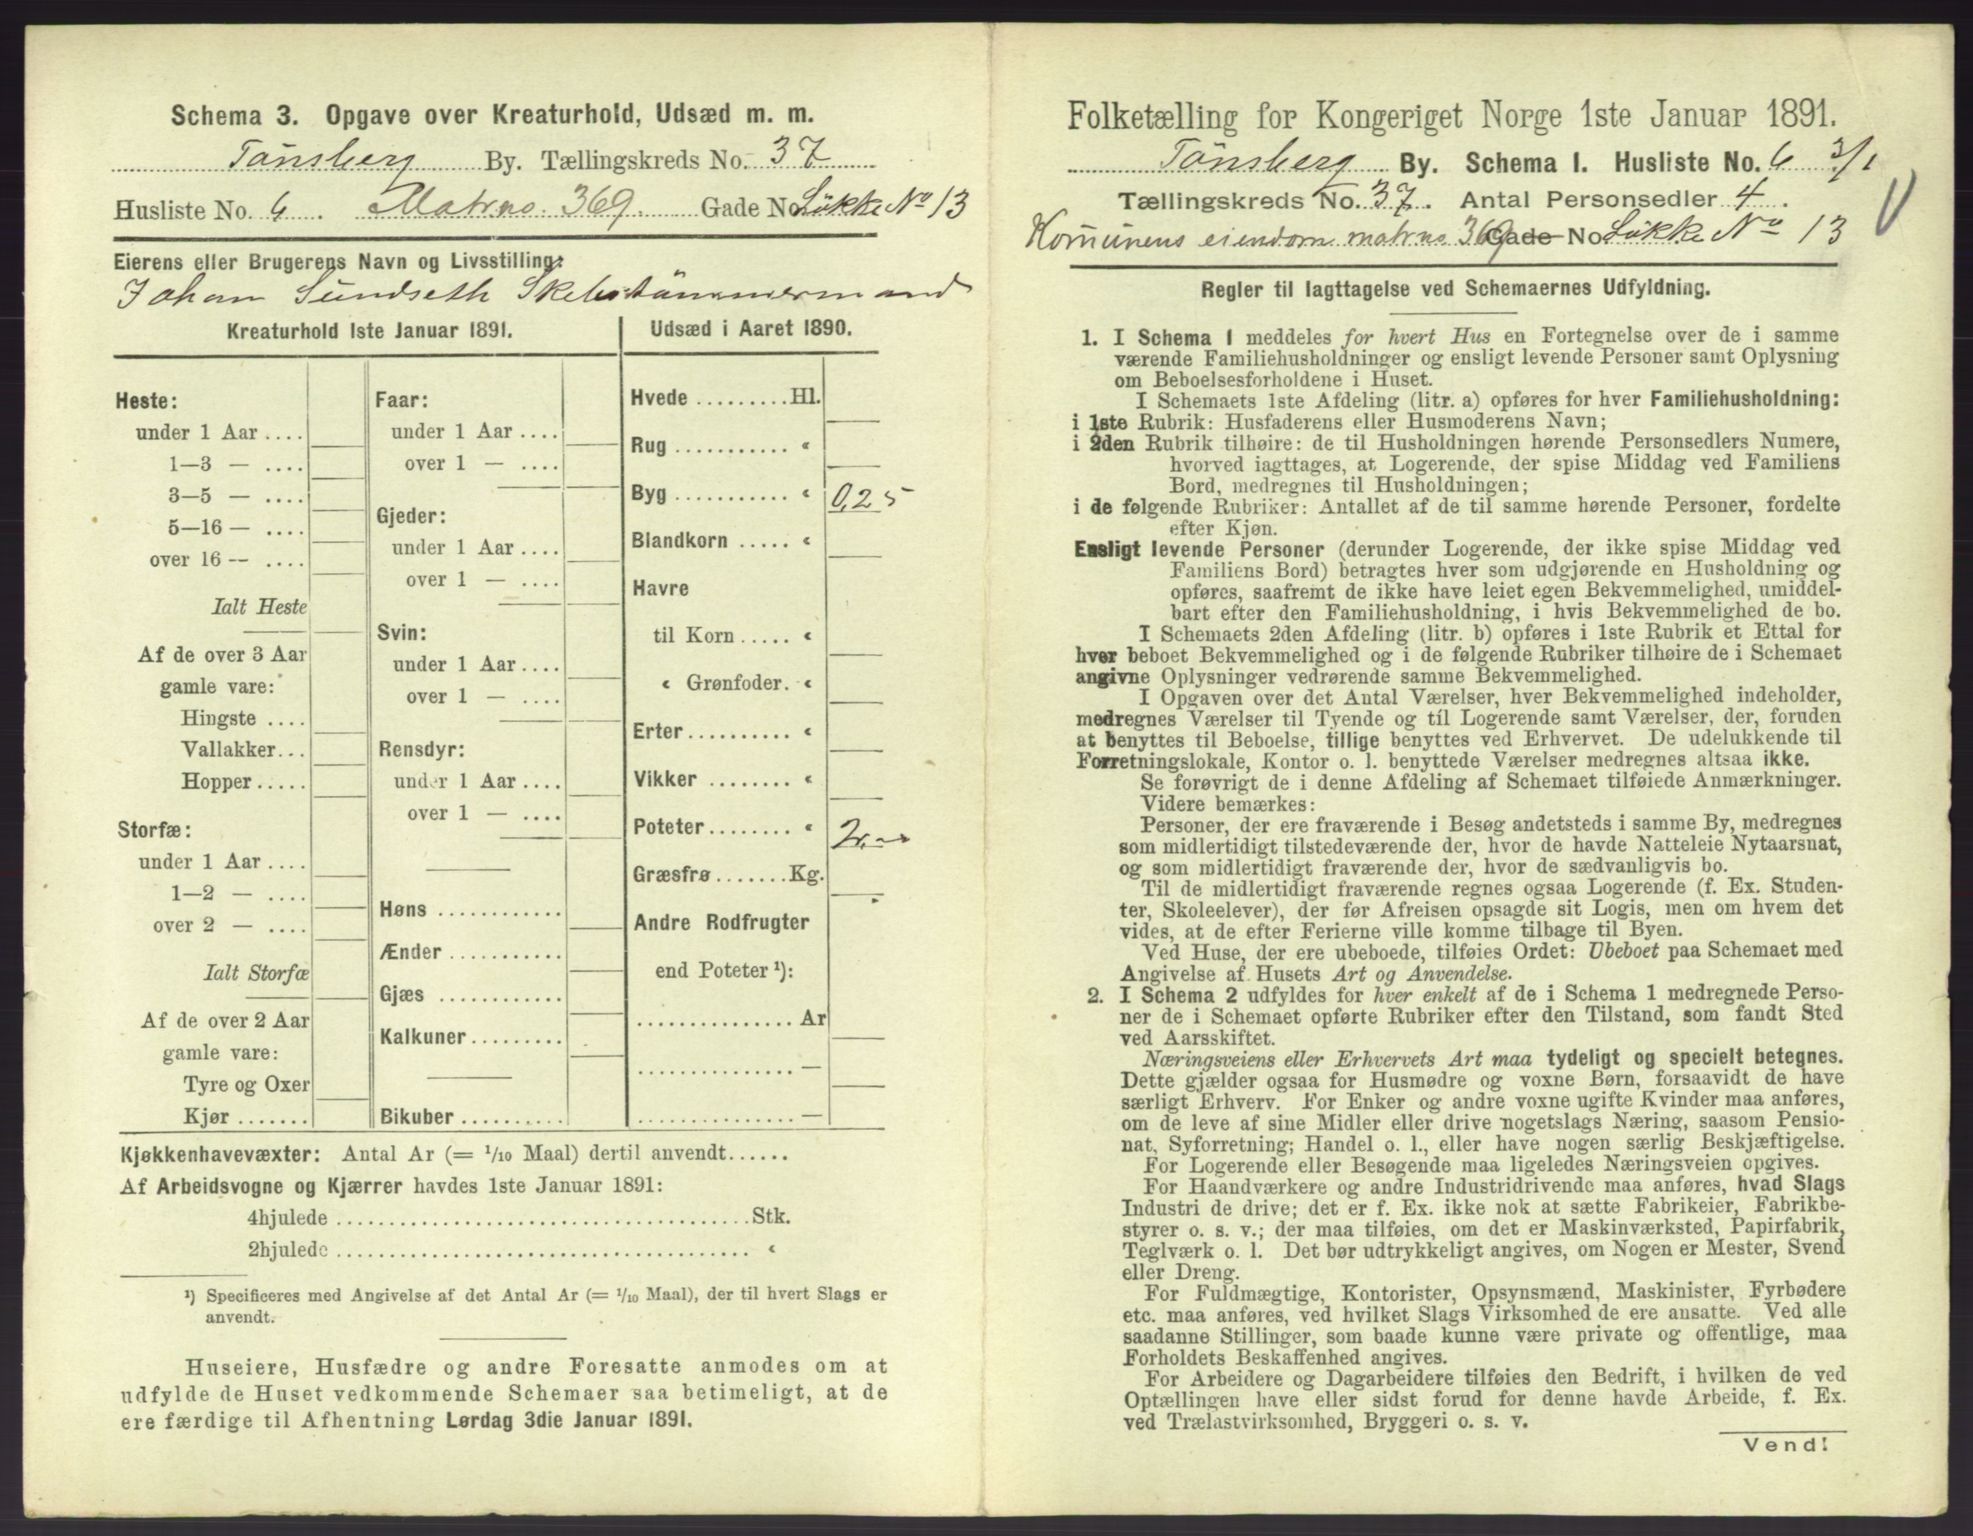 Schema 3. Opgave over Kreaturhold, Udsæd m. m.
Tønsberg By. Tællingskreds No. 37
Husliste No. 6. Matrno. 369. Gade No. Løkke No 13
Eierens eller Brugerens Navn og Livsstilling:
Johan Sundseth Skibstømmermand
Kreaturhold 1ste Januar 1891.
Heste:
under 1 Aar ....
1—3 — ....
3—5 — ....
5—16 — ....
over 16 — ....
Ialt Heste
Af de over 3 Aar
gamle vare:
Hingste ....
Vallakker...
Hopper.....
Storfæ:
under 1 Aar ....
1—2 — ....
over 2 — ....
Ialt Storfæ
Af de over 2 Aar
gamle vare:
Tyre og Oxer
Kjør.......
Faar:
under 1 Aar ....
over 1 — ....
Gjeder:
under 1 Aar ....
over 1 — ....
Svin:
under 1 Aar ....
over 1 — ....
Rensdyr:
under 1 Aar ....
over 1 — ....
Høns ............
Ænder ...........
Gjæs ............
Kalkuner.........
Bikuber ..........
Udsæd i Aaret 1890.
Hvede .........Hl.
Rug ........... «
Byg ........... « 0,25
Blandkorn ..... «
Havre
til Korn ..... «
« Grønfoder. «
Erter.......... «
Vikker ........ «
Poteter........ « 2,—
Græsfrø.......Kg.
Andre Rodfrugter
end Poteter ¹):
...............Ar
............... —
............... —
Kjøkkenhavevæxter: Antal Ar (= 1/10 Maal) dertil anvendt......
Af Arbeidsvogne og Kjærrer havdes 1ste Januar 1891:
4hjulede ........................................Stk.
2hjulede ........................................ «
¹) Specificeres med Angivelse af det Antal Ar (= 1/10 Maal), der til hvert Slags er
anvendt.
Huseiere, Husfædre og andre Foresatte anmodes om at
udfylde de Huset vedkommende Schemaer saa betimeligt, at de
ere færdige til Afhentning Lørdag 3die Januar 1891.
Folketælling for Kongeriget Norge 1ste Januar 1891.
Tønsberg By. Schema I. Husliste No. 6 3/1
Tællingskreds No. 37. Antal Personsedler 4.
Komunens eiendom matrno 369 Gade No Løkke No 13
Regler til Iagttagelse ved Schemaernes Udfyldning.
1. I Schema 1 meddeles for hvert Hus en Fortegnelse over de i samme
værende Familiehusholdninger og ensligt levende Personer samt Oplysning
om Beboelsesforholdene i Huset.
I Schemaets 1ste Afdeling (litr. a) opføres for hver Familiehusholdning:
i 1ste Rubrik: Husfaderens eller Husmoderens Navn;
i 2den Rubrik tilhøire: de til Husholdningen hørende Personsedlers Numere,
hvorved iagttages, at Logerende, der spise Middag ved Familiens
Bord, medregnes til Husholdningen;
i de følgende Rubriker: Antallet af de til samme hørende Personer, fordelte
efter Kjøn.
Ensligt levende Personer (derunder Logerende, der ikke spise Middag ved
Familiens Bord) betragtes hver som udgjørende en Husholdning og
opføres, saafremt de ikke have leiet egen Bekvemmelighed, umiddel-
bart efter den Familiehusholdning, i hvis Bekvemmelighed de bo.
I Schemaets 2den Afdeling (litr. b) opføres i 1ste Rubrik et Ettal for
hver beboet Bekvemmelighed og i de følgende Rubriker tilhøire de i Schemaet
angivne Oplysninger vedrørende samme Bekvemmelighed.
I Opgaven over det Antal Værelser, hver Bekvemmelighed indeholder,
medregnes Værelser til Tyende og til Logerende samt Værelser, der, foruden
at benyttes til Beboelse, tillige benyttes ved Erhvervet. De udelukkende til
Forretningslokale, Kontor o. l. benyttede Værelser medregnes altsaa ikke.
Se forøvrigt de i denne Afdeling af Schemaet tilføiede Anmærkninger.
Videre bemærkes:
Personer, der ere fraværende i Besøg andetsteds i samme By, medregnes
som midlertidigt tilstedeværende der, hvor de havde Natteleie Nytaarsnat,
og som midlertidigt fraværende der, hvor de sædvanligvis bo.
Til de midlertidigt fraværende regnes ogsaa Logerende (f. Ex. Studen-
ter, Skoleelever), der før Afreisen opsagde sit Logis, men om hvem det
vides, at de efter Ferierne ville komme tilbage til Byen.
Ved Huse, der ere ubeboede, tilføies Ordet: Ubeboet paa Schemaet med
Angivelse af Husets Art og Anvendelse.
2. I Schema 2 udfyldes for hver enkelt af de i Schema 1 medregnede Perso-
ner de i Schemaet opførte Rubriker efter den Tilstand, som fandt Sted
ved Aarsskiftet.
Næringsveiens eller Erhvervets Art maa tydeligt og specielt betegnes.
Dette gjælder ogsaa for Husmødre og voxne Børn, forsaavidt de have
særligt Erhverv. For Enker og andre voxne ugifte Kvinder maa anføres,
om de leve af sine Midler eller drive nogetslags Næring, saasom Pensio-
nat, Syforretning; Handel o. l., eller have nogen særlig Beskjæftigelse.
For Logerende eller Besøgende maa ligeledes Næringsveien opgives.
For Haandværkere og andre Industridrivende maa anføres, hvad Slags
Industri de drive; det er f. Ex. ikke nok at sætte Fabrikeier, Fabrikbe-
styrer o. s. v.; der maa tilføies, om det er Maskinværksted, Papirfabrik,
Teglværk o. l. Det bør udtrykkeligt angives, om Nogen er Mester, Svend
eller Dreng.
For Fuldmægtige, Kontorister, Opsynsmænd, Maskinister, Fyrbødere
etc. maa anføres, ved hvilket Slags Virksomhed de ere ansatte. Ved alle
saadanne Stillinger, som baade kunne være private og offentlige, maa
Forholdets Beskaffenhed angives.
For Arbeidere og Dagarbeidere tilføies den Bedrift, i hvilken de ved
Optællingen have eller sidst forud for denne havde Arbeide, f. Ex.
ved Trælastvirksomhed, Bryggeri o. s. v.
Vend!